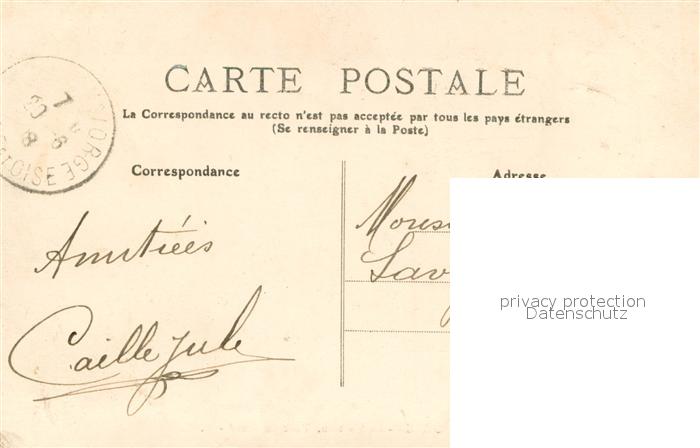 CARTE POSTALE
La Correspondance au recto n'est pas acceptée par tous les pays étrangers
(Se renseigner à la Poste)
Correspondance
Adresse
Amitiées
Caille Jule
privacy protection
Datenschutz